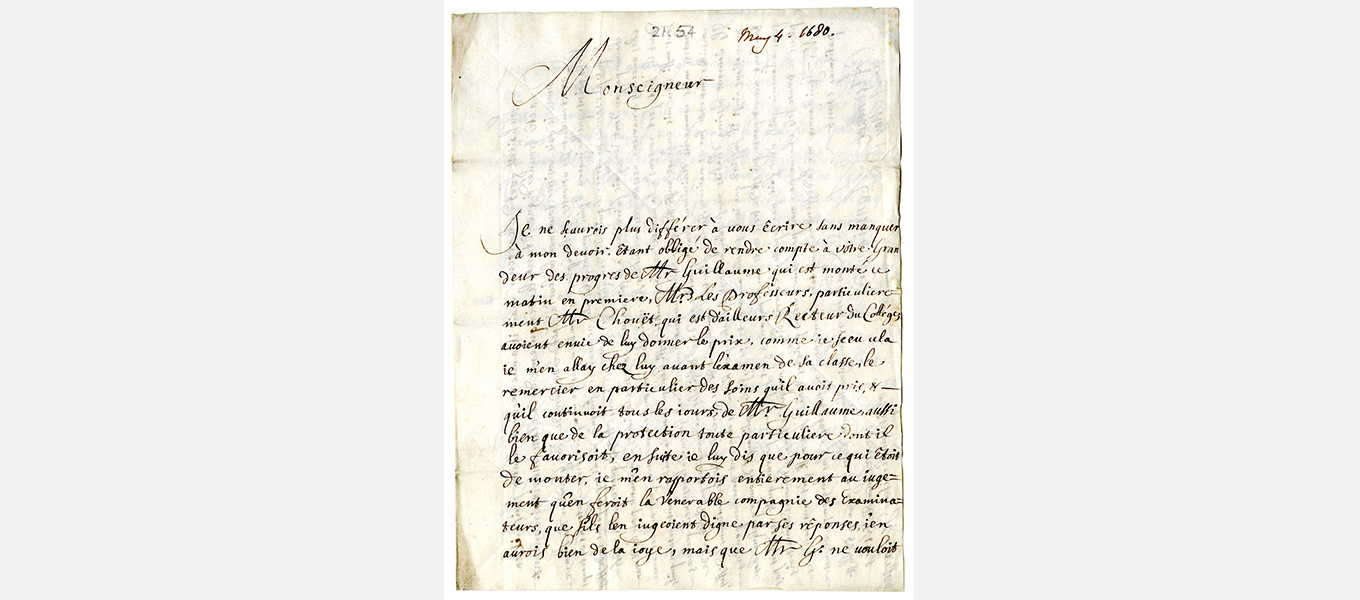 2K54
May 4. 1680.
Monseigneur
Je ne scaurois plus différer à vous Ecrire sans manquer
à mon devoir. Etant obligé de rendre compte à vôtre Gran
deur des progres de Mr Guillaume qui est monté ce
matin en premiere, Mrs Les Professeurs, particuliere=
ment Mr Chouët, qui est d'ailleurs Recteur du Collége,
avoient envie de luy donner le prix, comme ie sceu cela
ie m'en allay chez luy avant l'éxamen de sa classe, le
remercier en particulier des soins qu'il avoit pris, &
qu'il continuoit tous les iours, de Mr. Guillaume, aussi
bien que de la protection toute particuliere dont il
le favorisoit, en suite ie luy dis que pour ce qui êtoit
de monter, ie m'en rapportois entierement au iuge=
ment qu'en feroit la Venerable compagnie des Examina=
teurs, que s'ils l'en iugeoient digne par ses réponses, i'en
aurois bien de la ioye, mais que Mr G. ne vouloit